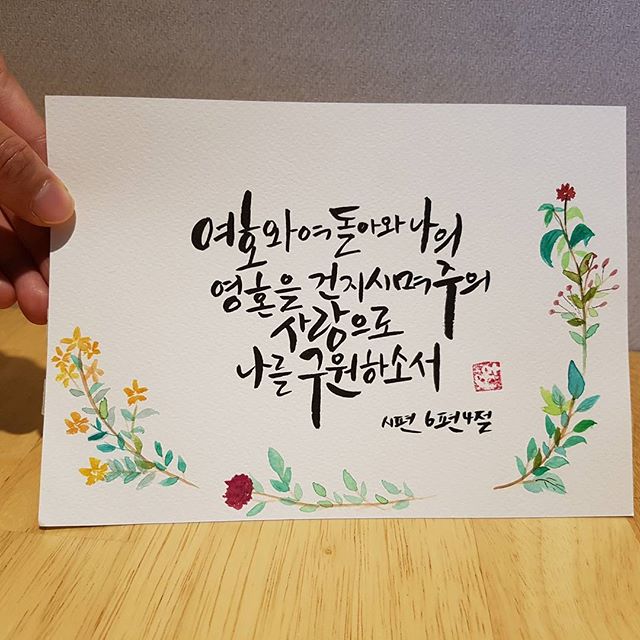 여호와여 돌아와 나의
영혼을 건지시며 주의
사랑으로
나를 구원하소서
시편 6편4절